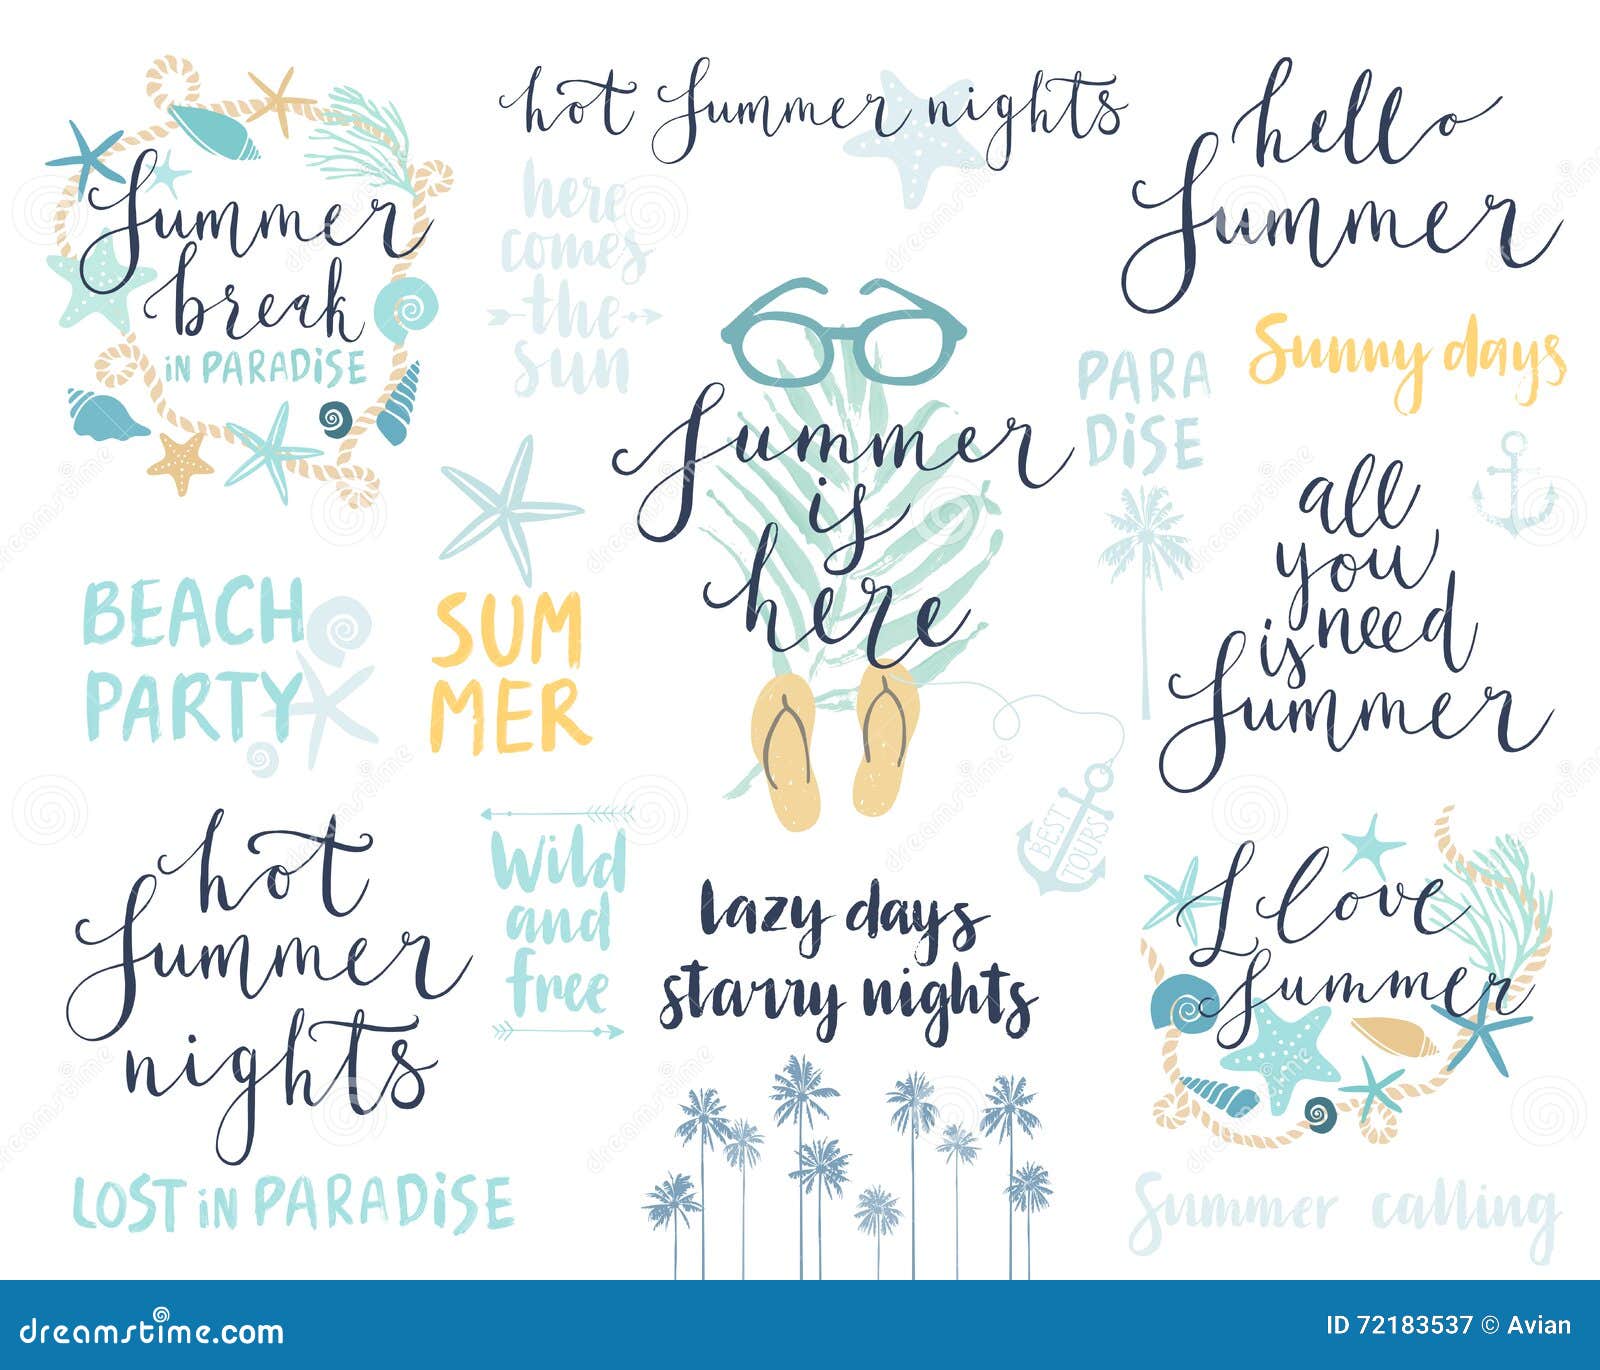 Summer
break
in PARADiSE
hot Summer nights
here
comes
the
sun
hello
Summer
Sunny days
PARA
DiSE
Summer
is
here
all
you
is need
Summer
BEACH
PARTY
SUM
MER
BEST
TOURS
hot
Summer
nights
Wild
and
free
lazy days
starry nights
I love
Summer
LOST iN PARADiSE
Summer calling
dreamstime.com
ID 72183537 © Avian